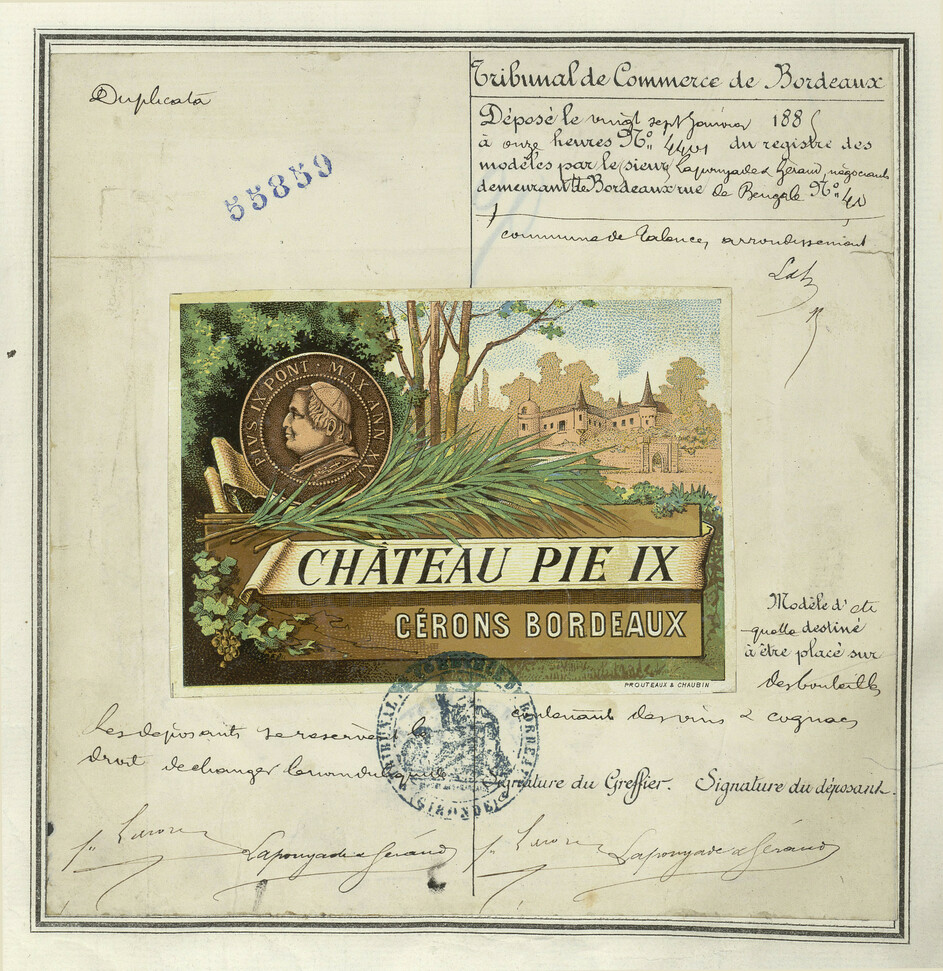 Duplicata
55859
Tribunal de Commerce de Bordeaux
Déposé le vingt sept Janvier 188
à onze heures No. 4401 du registre des
modèles par le sieur Lapouyade & Géraud, négociants
demeurant de Bordeaux rue de Bengale No. 40
commune de Talence, arrondissement
PIVS IX PONT · MAX ANN XX
CHÂTEAU PIE IX
CÉRONS BORDEAUX
PROUTEAUX & CHAUBIN
Modèle d'éti
quette destiné
à être placé sur
des bouteilles
contenant des vins & cognacs
Les déposants se réservent le
droit de changer le nom du
TRIBUNAL DE COMMERCE DE BORDEAUX
(GIRONDE)
Signature du Greffier. Signature du déposant.
Lapouyade & Géraud
Lapouyade & Géraud